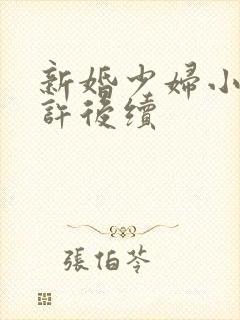 新婚少婦小
許後續
張伯苓